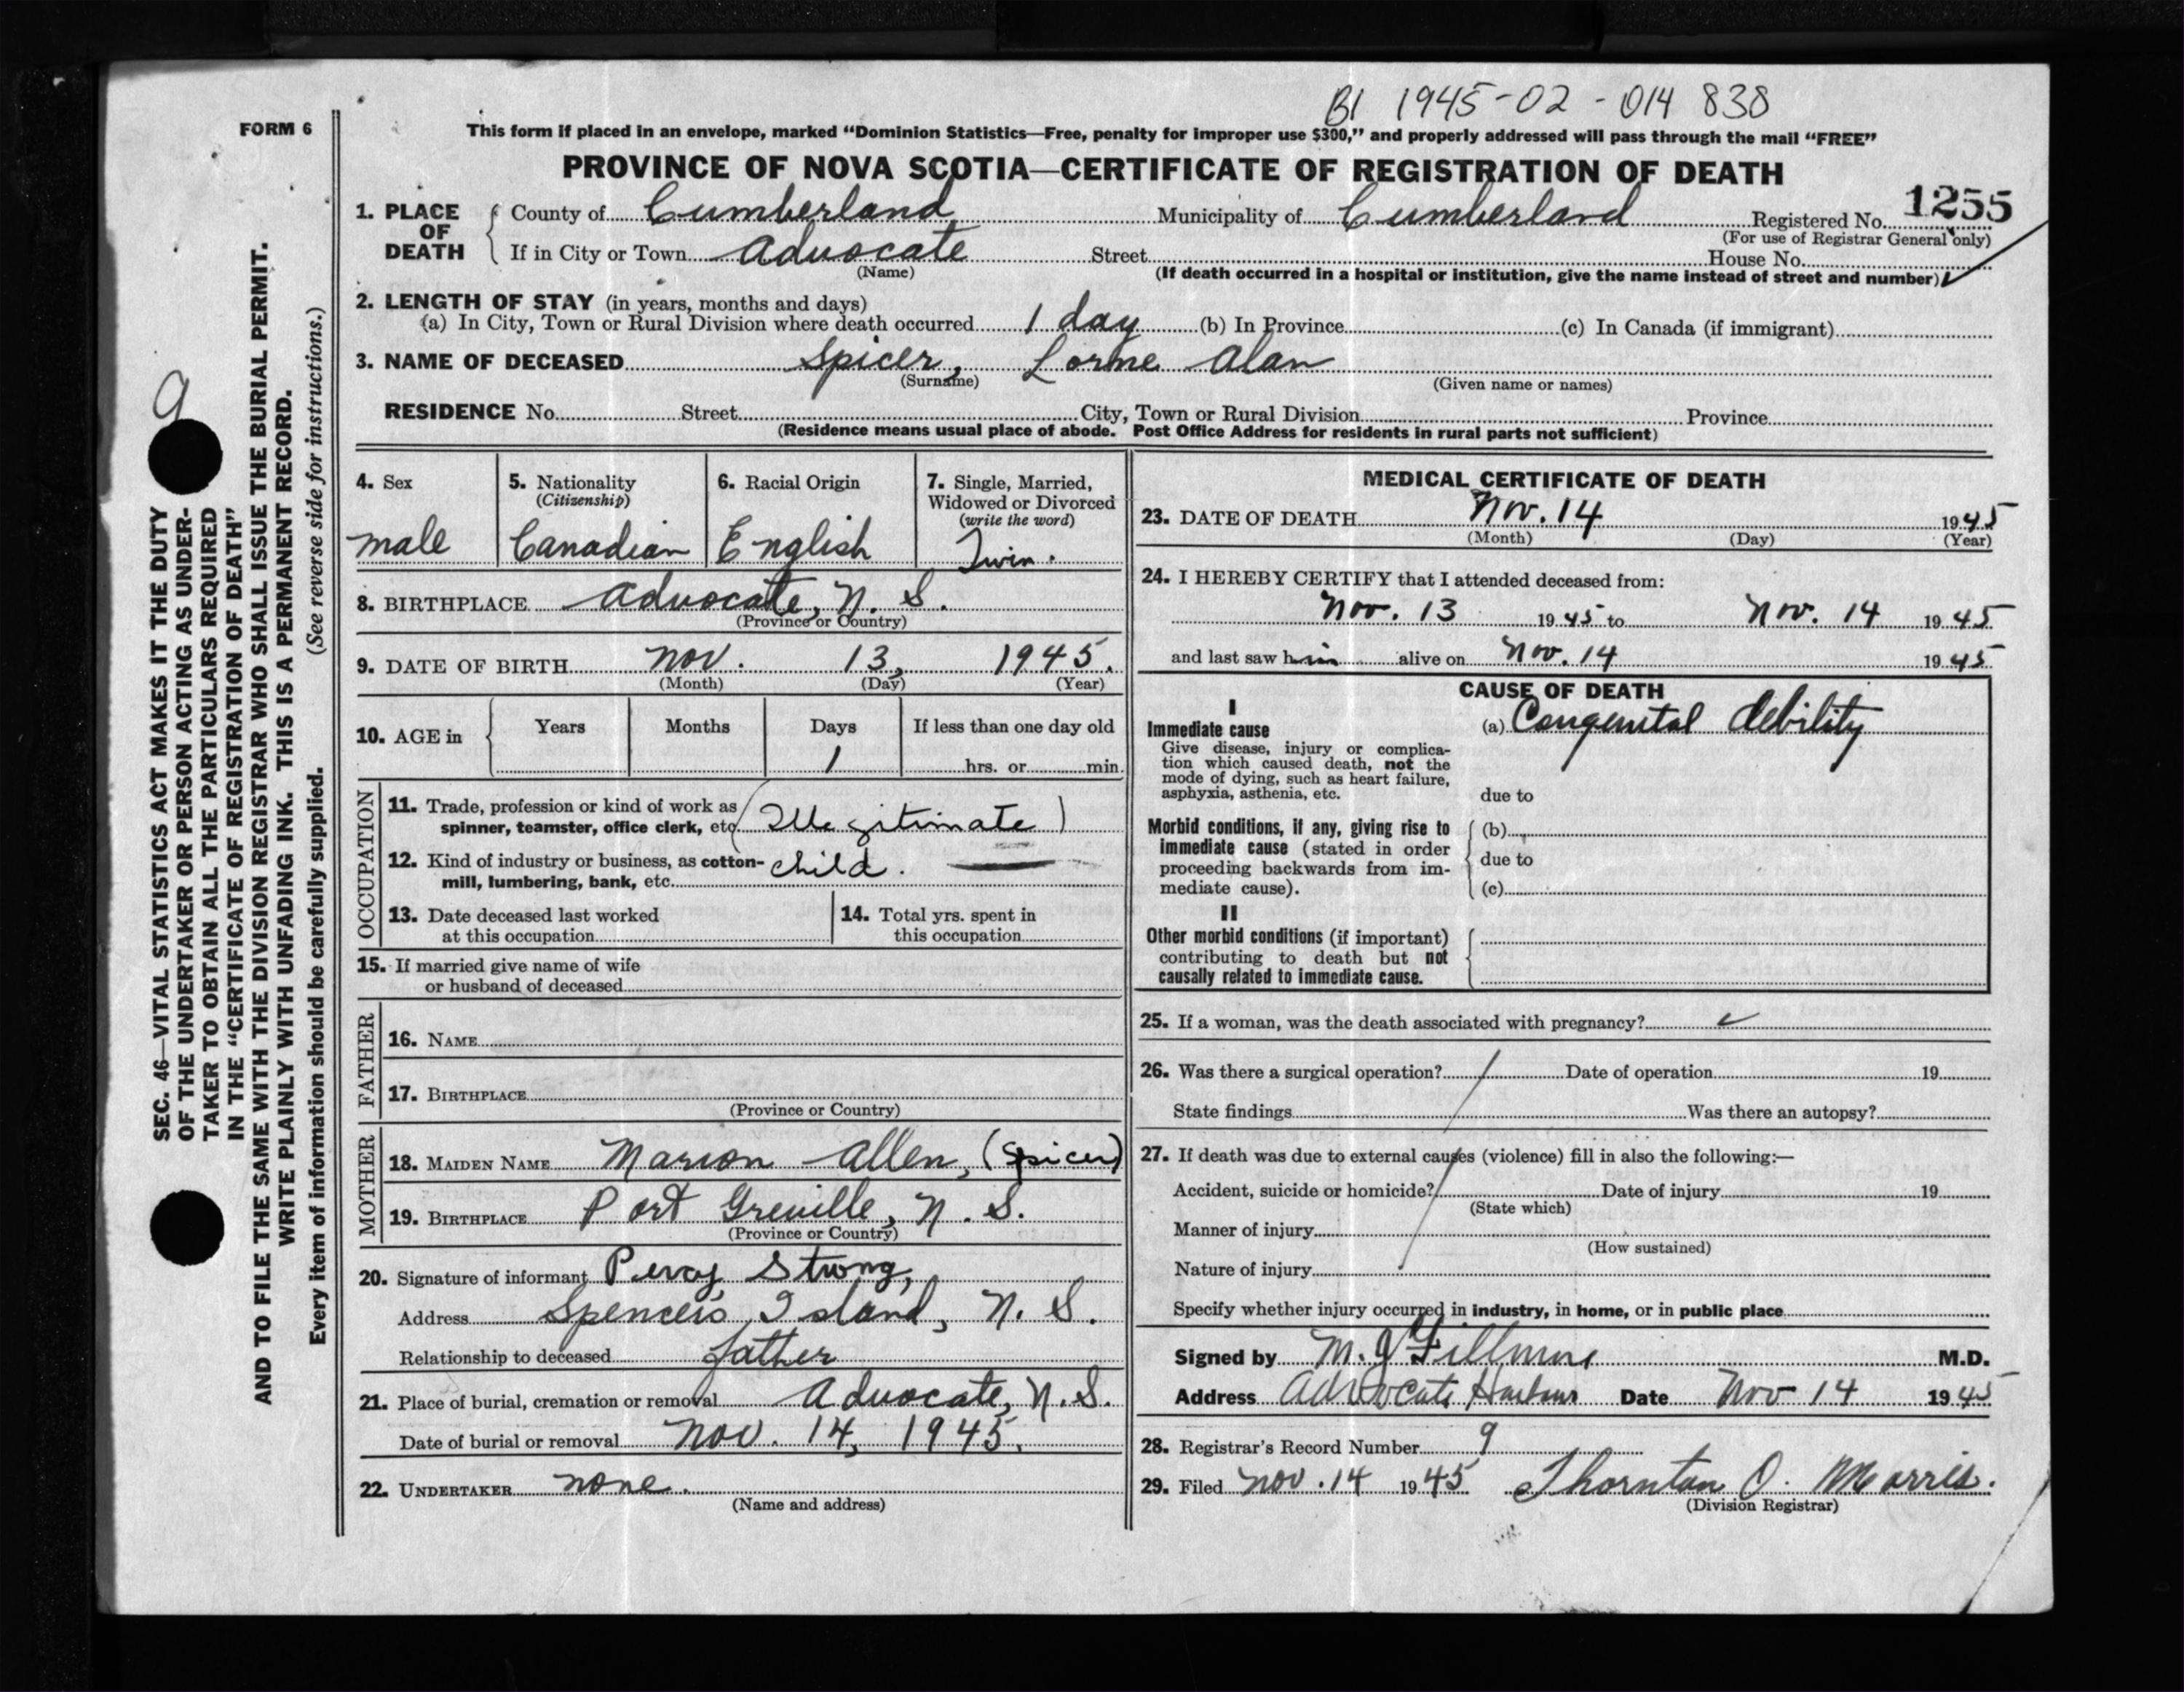 BI 1945-02-014 838
FORM 6
This form if placed in an envelope, marked "Dominion Statistics—Free, penalty for improper use $300," and properly addressed will pass through the mail "FREE"
PROVINCE OF NOVA SCOTIA—CERTIFICATE OF REGISTRATION OF DEATH
1255
1. PLACE OF DEATH
County of Cumberland Municipality of Cumberland Registered No.
(For use of Registrar General only)
If in City or Town Advocate Street House No.
(Name) (If death occurred in a hospital or institution, give the name instead of street and number)
2. LENGTH OF STAY (in years, months and days)
(a) In City, Town or Rural Division where death occurred 1 day (b) In Province (c) In Canada (if immigrant)
3. NAME OF DECEASED Spicer, Lorne Alan
(Surname) (Given name or names)
RESIDENCE No. Street City, Town or Rural Division Province
(Residence means usual place of abode. Post Office Address for residents in rural parts not sufficient)
9
SEC. 46—VITAL STATISTICS ACT MAKES IT THE DUTY
OF THE UNDERTAKER OR PERSON ACTING AS UNDER-
TAKER TO OBTAIN ALL THE PARTICULARS REQUIRED
IN THE "CERTIFICATE OF REGISTRATION OF DEATH"
AND TO FILE THE SAME WITH THE DIVISION REGISTRAR WHO SHALL ISSUE THE BURIAL PERMIT.
WRITE PLAINLY WITH UNFADING INK. THIS IS A PERMANENT RECORD.
Every item of information should be carefully supplied. (See reverse side for instructions.)
4. Sex
male
5. Nationality
(Citizenship)
Canadian
6. Racial Origin
English
7. Single, Married,
Widowed or Divorced
(write the word)
Twin.
8. BIRTHPLACE Advocate, N. S.
(Province or Country)
9. DATE OF BIRTH Nov. 13, 1945.
(Month) (Day) (Year)
10. AGE in Years Months Days If less than one day old
1 hrs. or min.
OCCUPATION
11. Trade, profession or kind of work as
spinner, teamster, office clerk, etc. (Illegitimate)
12. Kind of industry or business, as cotton-
mill, lumbering, bank, etc. child.
13. Date deceased last worked
at this occupation
14. Total yrs. spent in
this occupation
15. If married give name of wife
or husband of deceased
FATHER
16. NAME
17. BIRTHPLACE
(Province or Country)
MOTHER
18. MAIDEN NAME Marion Allen, (Spicer)
19. BIRTHPLACE Port Greville, N. S.
(Province or Country)
20. Signature of informant Percy Strong,
Address Spencer's Island, N. S.
Relationship to deceased father
21. Place of burial, cremation or removal Advocate, N.S.
Date of burial or removal Nov. 14, 1945.
22. UNDERTAKER none.
(Name and address)
MEDICAL CERTIFICATE OF DEATH
23. DATE OF DEATH Nov. 14 1945
(Month) (Day) (Year)
24. I HEREBY CERTIFY that I attended deceased from:
Nov. 13 1945 to Nov. 14 1945
and last saw him alive on Nov. 14 1945
CAUSE OF DEATH
I
Immediate cause
Give disease, injury or complica-
tion which caused death, not the
mode of dying, such as heart failure,
asphyxia, asthenia, etc.
(a) Congenital debility
due to
Morbid conditions, if any, giving rise to
immediate cause (stated in order
proceeding backwards from im-
mediate cause).
(b)
due to
(c)
II
Other morbid conditions (if important)
contributing to death but not
causally related to immediate cause.
25. If a woman, was the death associated with pregnancy?
26. Was there a surgical operation? Date of operation 19
State findings Was there an autopsy?
27. If death was due to external causes (violence) fill in also the following:—
Accident, suicide or homicide? Date of injury 19
(State which)
Manner of injury
(How sustained)
Nature of injury
Specify whether injury occurred in industry, in home, or in public place
Signed by M. J Fillmore M.D.
Address Advocate Harbour Date Nov 14 1945
28. Registrar's Record Number 9
29. Filed Nov. 14 1945 Thornton O. Morris.
(Division Registrar)